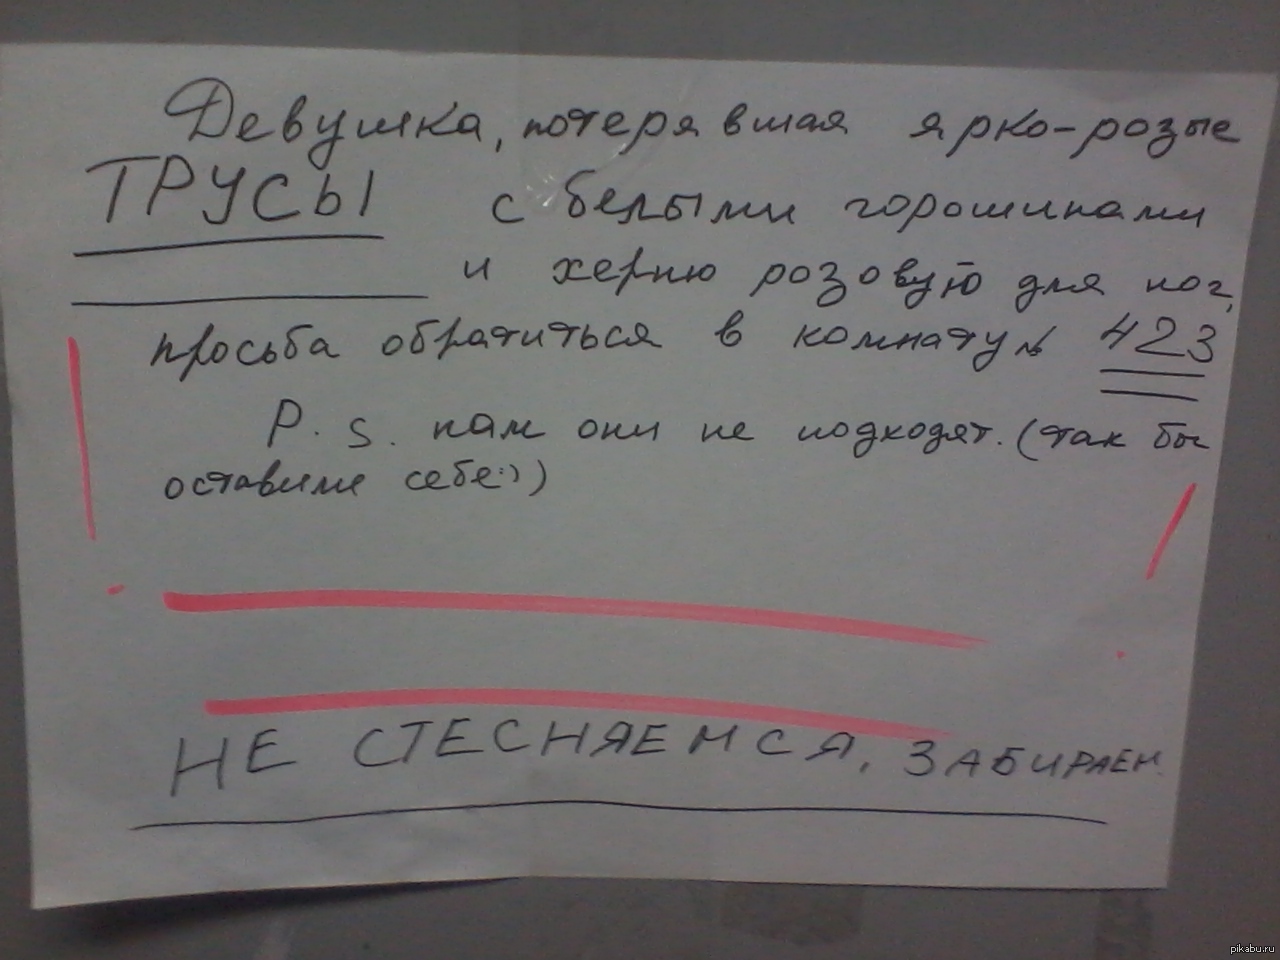 Девушка, потерявшая ярко-розые
ТРУСЫ с белыми горошинами
и херню розовую для ног,
просьба обратиться в комнату № 423
P.S. нам они не подходят. (так бы
оставили себе:))
НЕ СТЕСНЯЕМСЯ, ЗАБИРАЕМ.
pikabu.ru